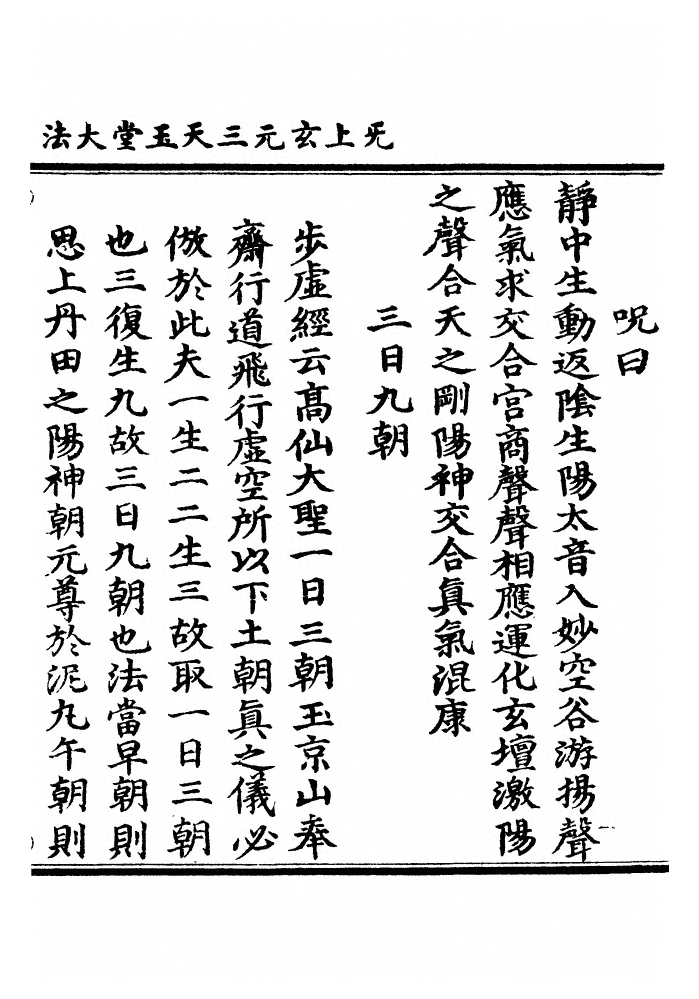 无上玄元三天玉堂大法
呪曰
靜中生動返陰生陽太音入妙空谷游揚聲
應氣求交合宮商聲聲相應運化玄壇激陽
之聲合天之剛陽神交合真氣混康
三日九朝
步虛經云高仙大聖一日三朝玉京山奉
齋行道飛行虛空所以下土朝真之儀必
倣於此夫一生二二生三故取一日三朝
也三復生九故三日九朝也法當早朝則
思上丹田之陽神朝元尊於泥丸午朝則